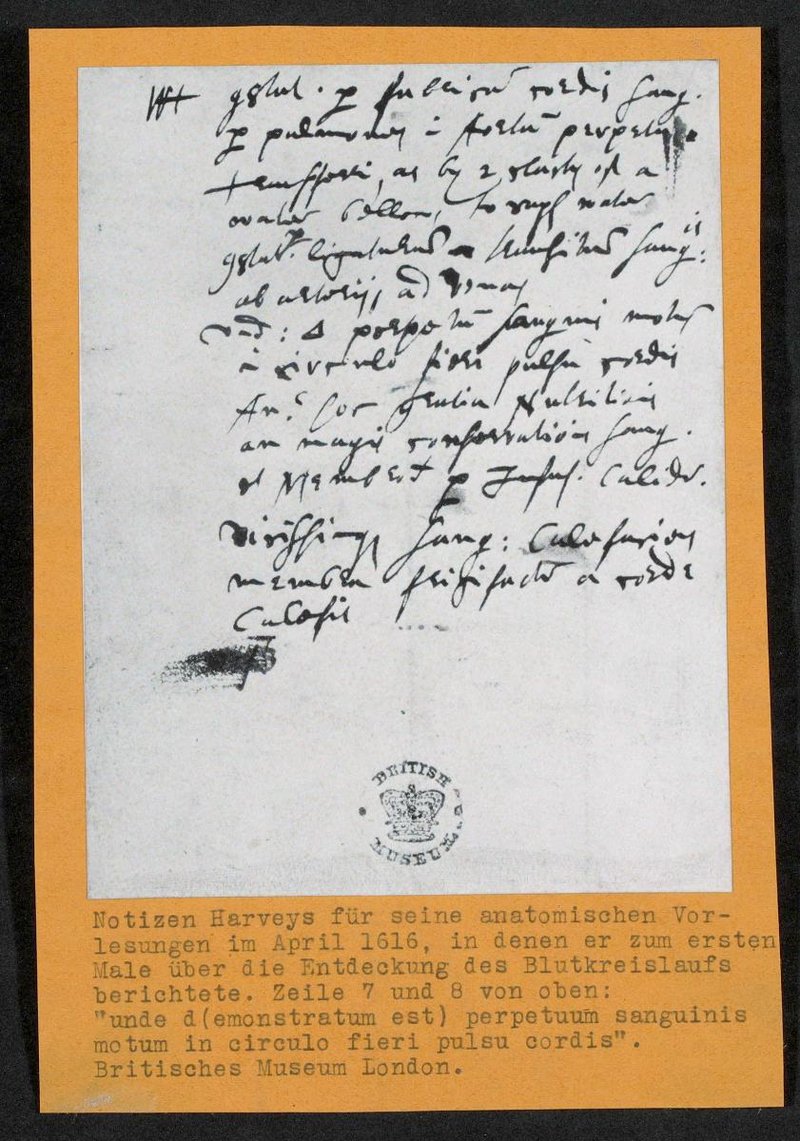 WH constat . p fabricam cordis sang.
p pulmones in Aortam perpetuo
transferri, as by 2 clacks of a
water bellows, to rays water
constat p ligaturam transitum sang:is
ab arterijs ad venas
und: Δ perpetuum sanguinis motum
in circulo fieri pulsu cordis
An? hoc gratia Nutritionis
an magis conservationis sang.
et Membrorum p Infus. Calidam.
vicissimque sang: Calefaciens
membra frigifactum a corde
Calefit
BRITISH
MUSEUM
Notizen Harveys für seine anatomischen Vor-
lesungen im April 1616, in denen er zum ersten
Male über die Entdeckung des Blutkreislaufs
berichtete. Zeile 7 und 8 von oben:
"unde d(emonstratum est) perpetuum sanguinis
motum in circulo fieri pulsu cordis".
Britisches Museum London.